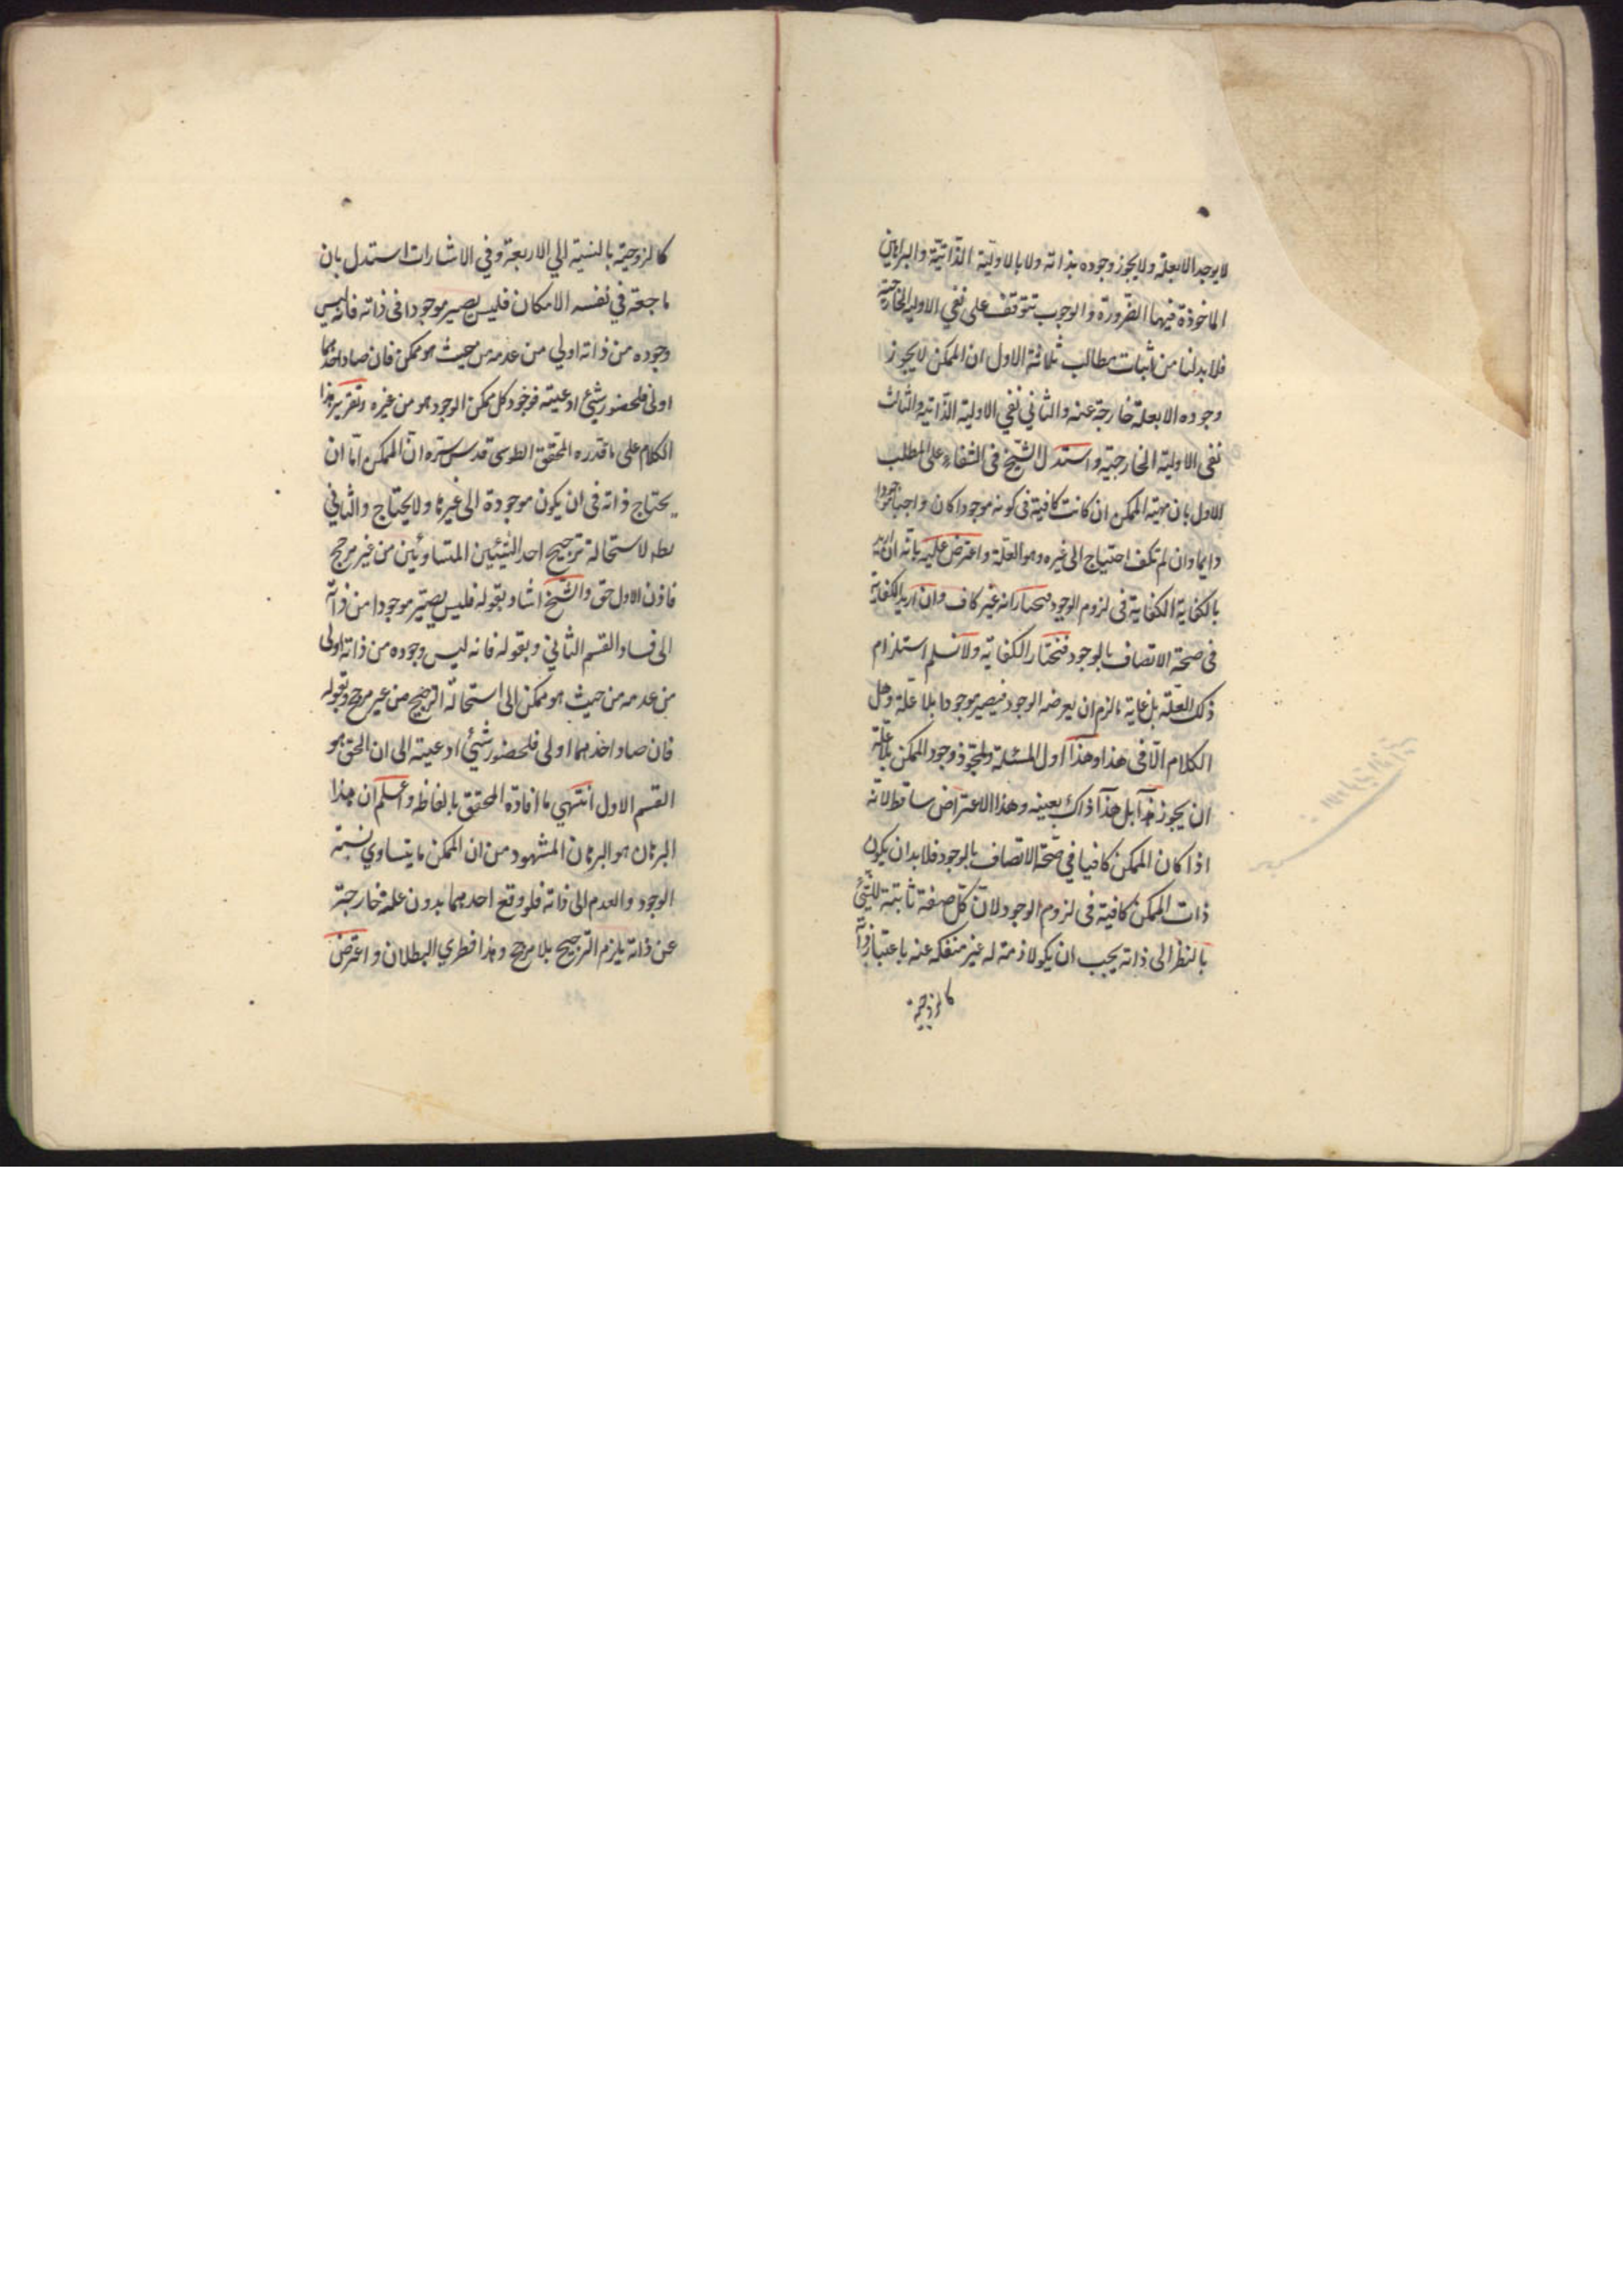 لا يوجد الا بعلة ولا يجوز وجوده بذاته ولا بالاولية الذاتية والبراهين
الماخوذة فيها الضرورة والوجوب تتوقف على نفي الاولية الخارجية
فلا بد لنا من اثبات مطالب ثلاثة الاول ان الممكن لا يجوز
وجوده الا بعلة خارجة عنه والثاني نفي الاولية الذاتية والثالث
نفى الاولية الخارجية واستدل الشيخ فى الشفاء على المطلب
الاول بان مهية الممكن ان كانت كافية فى كونه موجودا كان واجبا موجودا
دايما وان لم تكف احتياج الى غيره وهو العلة واعترض عليه بانه ان اريد
بالكفاية الكفاية فى لزوم الوجود فنختار انه غير كاف وان اريد الكفاية
فى صحة الاتصاف بالوجود فنختار الكفاية ولا نسلم استلزام
ذلك العلة بل غاية ما لزم ان يعرضه الوجود فيصير موجودا بلا علة وهل
الكلام الا فى هذا وهذا اول المسئلة ولمجوز وجود الممكن بلا علة
ان يجوز هذا بل هذا ذاك بعينه وهذا الاعتراض ساقط لانه
اذا كان الممكن كافيا في صحة الاتصاف بالوجود فلا بد ان يكون
ذات الممكن كافية فى لزوم الوجود لان كل صفة ثابتة للشئ
بالنظر الى ذاته يجب ان يكو لازمة له غير منفكه عنه باعتبار ذاته
كالزوجية
كالزوجية بالنسبة الي الاربعة وفي الاشارات استدل بان
ما حقه في نفسه الامكان فليس يصير موجودا فى ذاته فانه ليس
وجوده من ذاته اولي من عدمه من حيث هو ممكن فان صار احدهما
اولى فلحضور شئ او غيبته فوجود كل ممكن الوجود هو من غيره وتقرير هذا
الكلام على ما قدره المحقق الطوسى قدس سره ان الممكن اما ان
يحتاج ذاته فى ان يكون موجودة الى غيرها ولا يحتاج والثاني
بطه لاستحالة ترجيح احد الشيئين المتساويين من غير مرجح
فاذن الاول حق والشيخ اشار بقوله فليس يصير موجودا من ذاته
الى فساد القسم الثاني وبقوله فانه ليس وجوده من ذاته اولى
من عدمه من حيث هو ممكن الى استحالة الترجيح من غير مرجح وبقوله
فان صار احدهما اولى فلحضور شئ او غيبته الى ان الحق هو
القسم الاول انتهي ما افاده المحقق بالفاظه واعلم ان هذا
البرهان هو البرهان المشهود من ان الممكن ما يتساوي نسبة
الوجود والعدم الى ذاته فلو وقع احدهما بدون علة خارجة
عن ذاته يلزم الترجيح بلا مرجح وهذا فطري البطلان واعترض